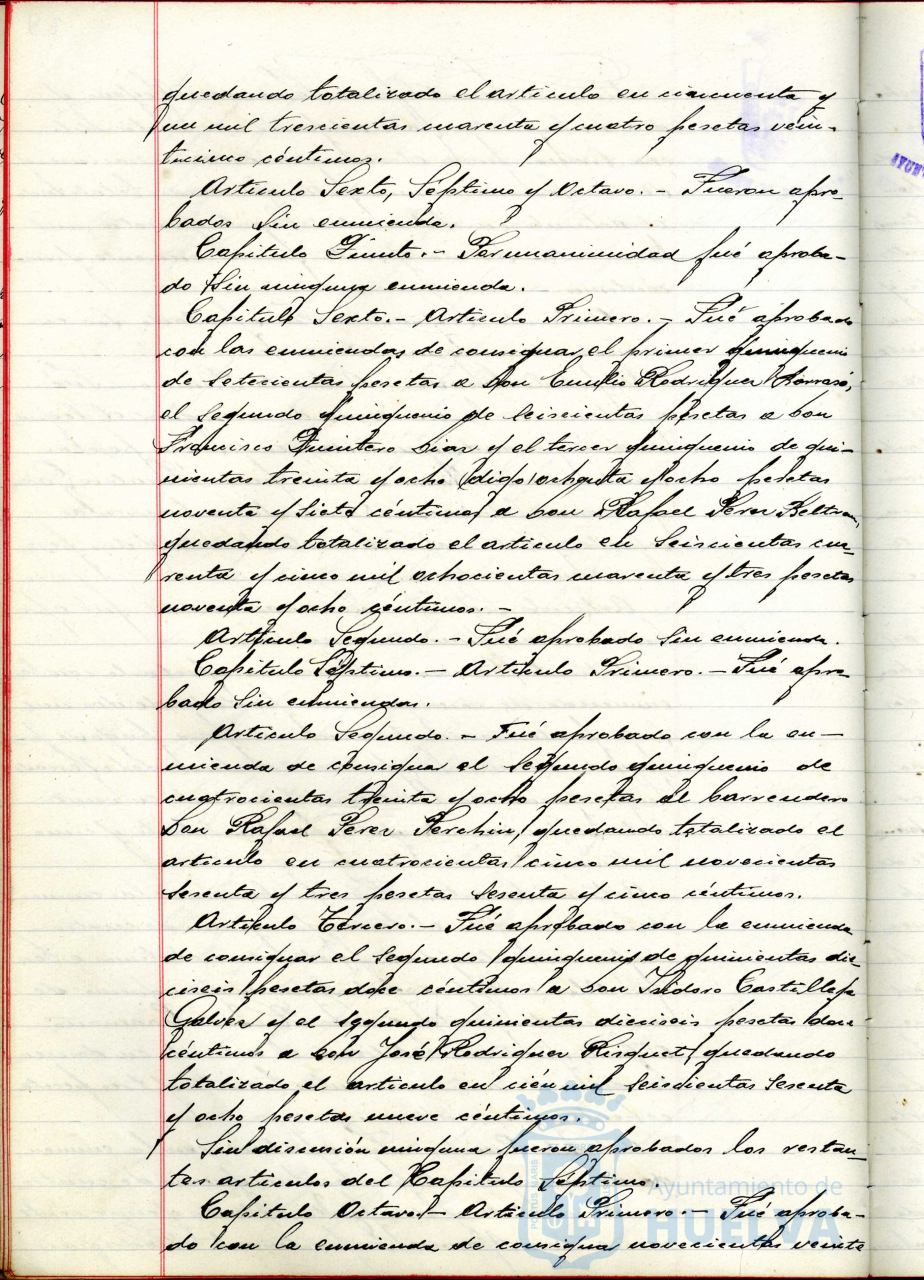 quedando totalizado el articulo en cincuenta y
un mil trescientas cuarenta y cuatro pesetas vein-
ticinco céntimos.
Articulo Sexto, Séptimo y Octavo. - Fueron apro-
bados sin enmienda.
Capitulo Quinto. - Por unanimidad fué aproba-
do sin ninguna enmienda.
Capitulo Sexto. - Articulo Primero. - Fué aprobado
con las enmiendas de consignar el primer quinquenio
de setecientas pesetas a Don Emilio Rodriguez
el segundo quinquenio de seiscientas pesetas a Don
Francisco Quintero Diaz y el tercer quinquenio de qui-
nientas treinta y ocho (digo) ochenta y ocho pesetas
noventa y siete céntimos a Don Rafael Perez Beltran,
quedando totalizado el articulo en seiscientas cua-
renta y cinco mil ochocientas cuarenta y tres pesetas
noventa y ocho céntimos. -
Articulo Segundo. - Fué aprobado sin enmienda.
Capitulo Séptimo. - Articulo Primero. - Fué apro-
bado sin enmiendas.
Articulo Segundo. - Fué aprobado con la en-
mienda de consignar el segundo quinquenio de
cuatrocientas treinta y ocho pesetas al barrendero
Don Rafael Perez Perchin, quedando totalizado el
articulo en cuatrocientas cinco mil novecientas
sesenta y tres pesetas sesenta y cinco céntimos.
Articulo Tercero. - Fué aprobado con la enmienda
de consignar el segundo quinquenio de quinientas die-
ciseis pesetas doce céntimos a Don Isidoro Castilleja
Galvez y el segundo quinientas dieciseis pesetas doce
céntimos a Don José Rodriguez Risquet, quedando
totalizado el articulo en cien mil seiscientas sesenta
y ocho pesetas nueve céntimos.
Sin discusión ninguna fueron aprobados los restan-
tes articulos del Capitulo Septimo.
Capitulo Octavo. - Articulo Primero. - Fué aproba-
do con la enmienda de consignar novecientas veinte
Ayuntamiento de
HUELVA